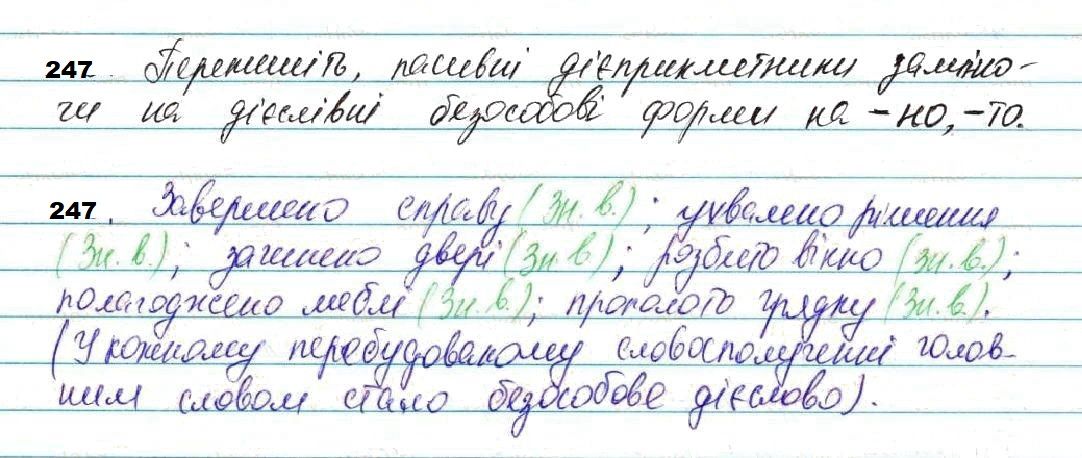 247. Перепишіть, пасивні дієприкметники заміню-
чи на дієслівні безособові форми на -но, -то.
247. Завершено справу (Зн. в.); ухвалено рішення
(Зн. в.); зачинено двері (Зн. в.); розбито вікно (Зн. в.);
полагоджено меблі (Зн. в.); прополото грядку (Зн. в.).
(У кожному перебудованому словосполученні голов-
ним словом стало безособове дієслово).